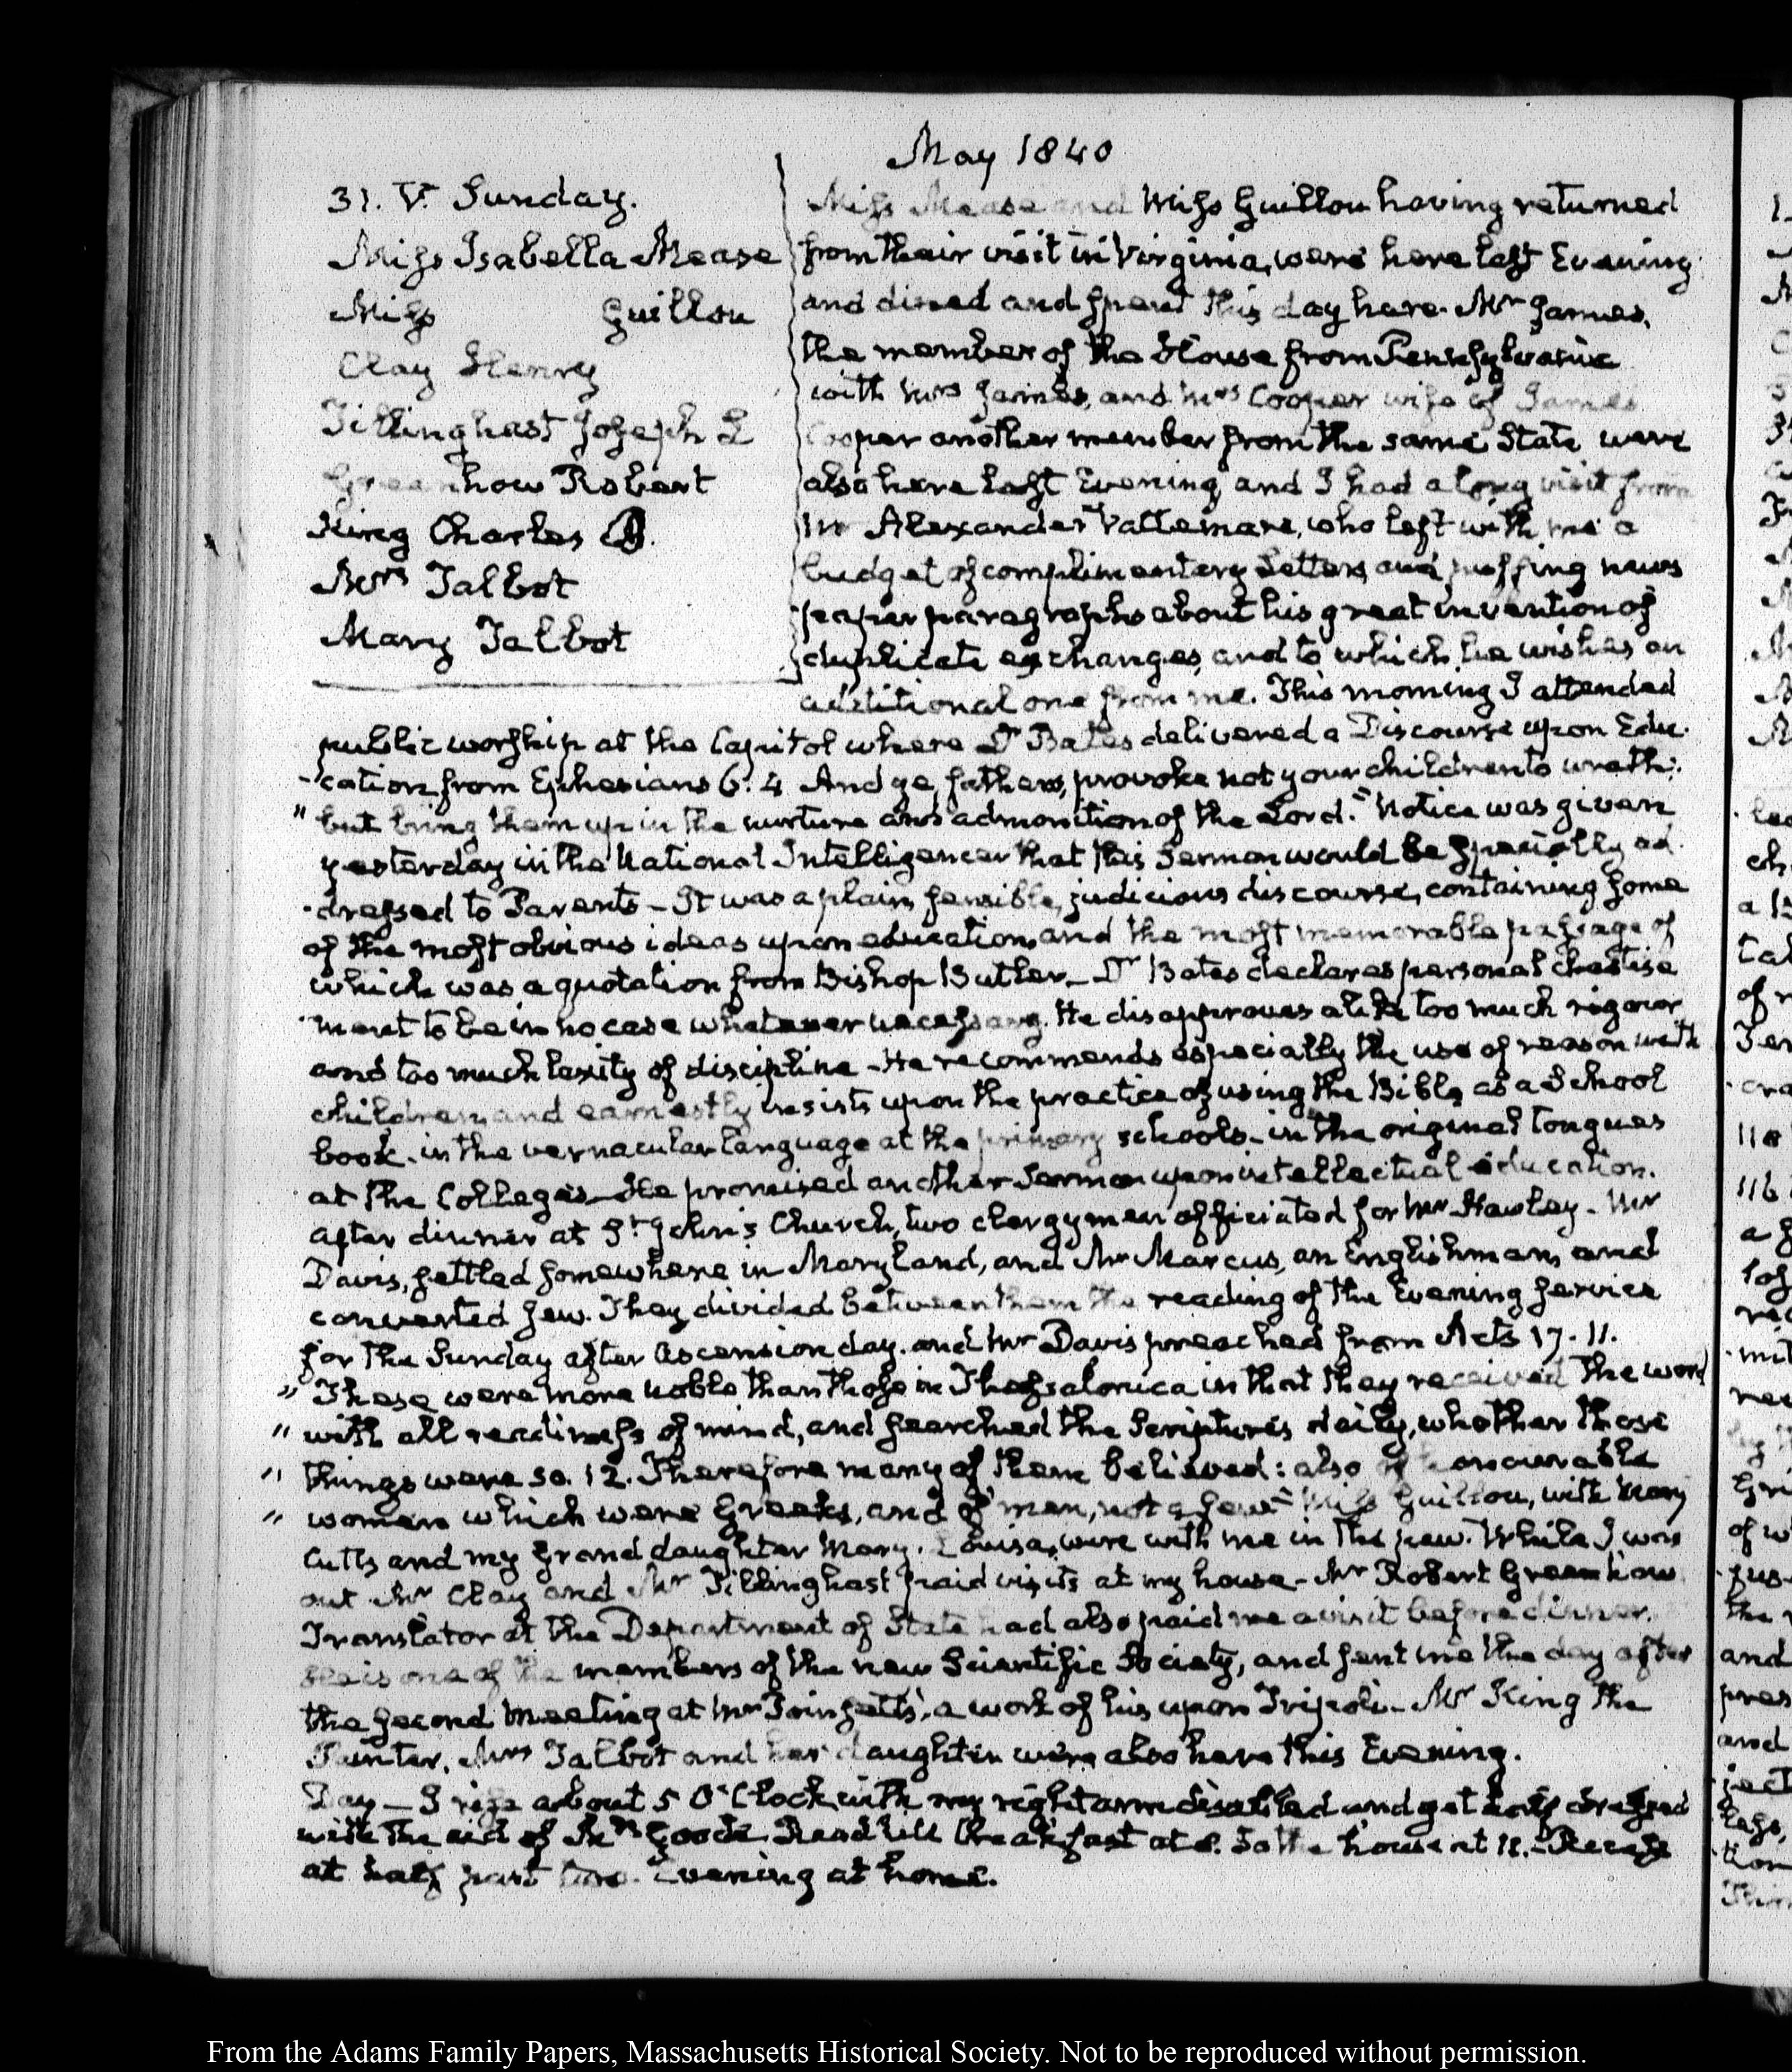 May 1840
31. V. Sunday.
Miss Isabella Mease
Miss Guillou
Clay Henry
Tillinghast Joseph L
Greenhow Robert
King Charles B.
Mrs Talbot
Mary Talbot
Miss Mease and Miss Guillou having returned
from their visit in Virginia, were here last Evening
and dined and spent this day here. Mr James,
the member of the House from Pennsylvania
with Mrs James, and Mrs Cooper wife of James
Cooper another member from the same State were
also here last Evening, and I had a long visit from
Mr Alexander Vattemare, who left with me a
budget of complimentary Letters, and puffing news
paper paragraphs about his great invention of
duplicate exchanges, and to which he wishes an
additional one from me. This morning I attended
public worship at the Capitol where Dr Bates delivered a Discourse upon Edu-
-cation from Ephesians 6:4 And ye, fathers, provoke not your children to wrath:
" but bring them up in the nurture and admonition of the Lord." Notice was given
yesterday in the National Intelligencer that this Sermon would be specially ad-
-dressed to Parents - It was a plain, sensible, judicious discourse, containing some
of the most obvious ideas upon education, and the most memorable passage of
which was a quotation from Bishop Butler - Dr Bates declares personal chastise
-ment to be in no case whatever necessary. He disapproves alike too much rigour
and too much laxity of discipline - He recommends especially the use of reason with
children, and earnestly insists upon the practice of using the Bible as a School
book. in the vernacular language at the primary schools - in the original tongues
at the Colleges - He promised another Sermon upon intellectual education.
After dinner at St John's Church, two clergymen officiated for Mr Hawley - Mr
Davis, settled somewhere in Maryland, and Mr Marcus, an Englishman, and
converted Jew. They divided between them the reading of the Evening service
for the Sunday after Ascension day. and Mr Davis preached from Acts 17. 11.
" These were more noble than those in Thessalonica in that they received the word
" with all readiness of mind, and searched the Scriptures daily, whether those
" things were so. 12. Therefore many of them believed: also of honourable
" women which were Greeks, and of men, not a few" Miss Guillou, with Mary
Cutts and my Grand daughter Mary. Louisa, were with me in the pew. While I was
out Mr Clay and Mr Tillinghast paid visits at my house - Mr Robert Greenhow
Translator at the Department of State had also paid me a visit before dinner.
He is one of the members of the new Scientific Society, and sent me the day after
the second Meeting at Mr Poinsett's, a work of his upon Tripoli - Mr King the
Painter, Mrs Talbot and her daughter were also here this Evening.
Day - I rise about 5 O'Clock with my right arm disabled and get half dressed
with the aid of Goods. Read till breakfast at 8. To the house at 11. - Recess
at half past two. Evening at home.
From the Adams Family Papers, Massachusetts Historical Society. Not to be reproduced without permission.